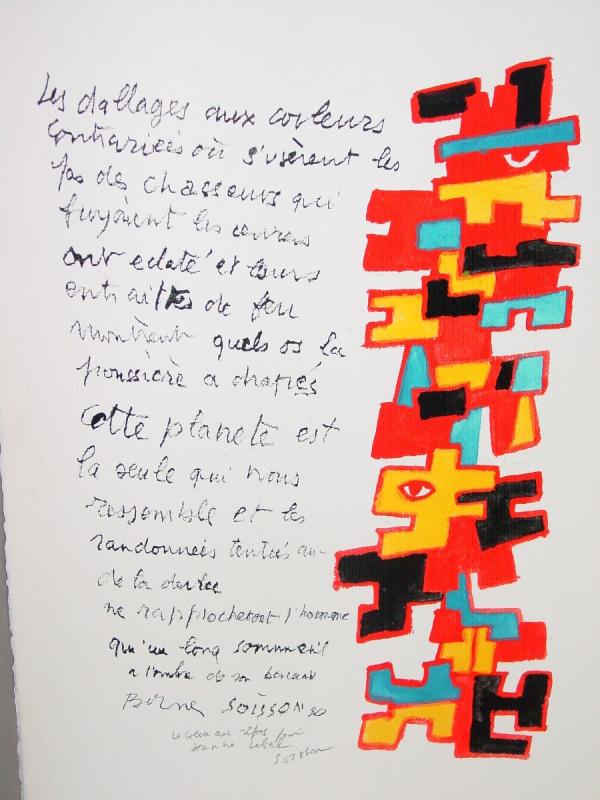 Les dallages aux couleurs
contrariées où s'usèrent les
pas des chasseurs qui
fuyaient les
ont eclaté et leurs
entrailles de feu
montrent quels os la
poussière a drapés
Cette planete est
la seule qui nous
rassemble et les
randonnées tentées au-
de la durée
ne rapprocheront l'homme
qu'un long sommeil
a l'ombre de son berceau
SOISSON